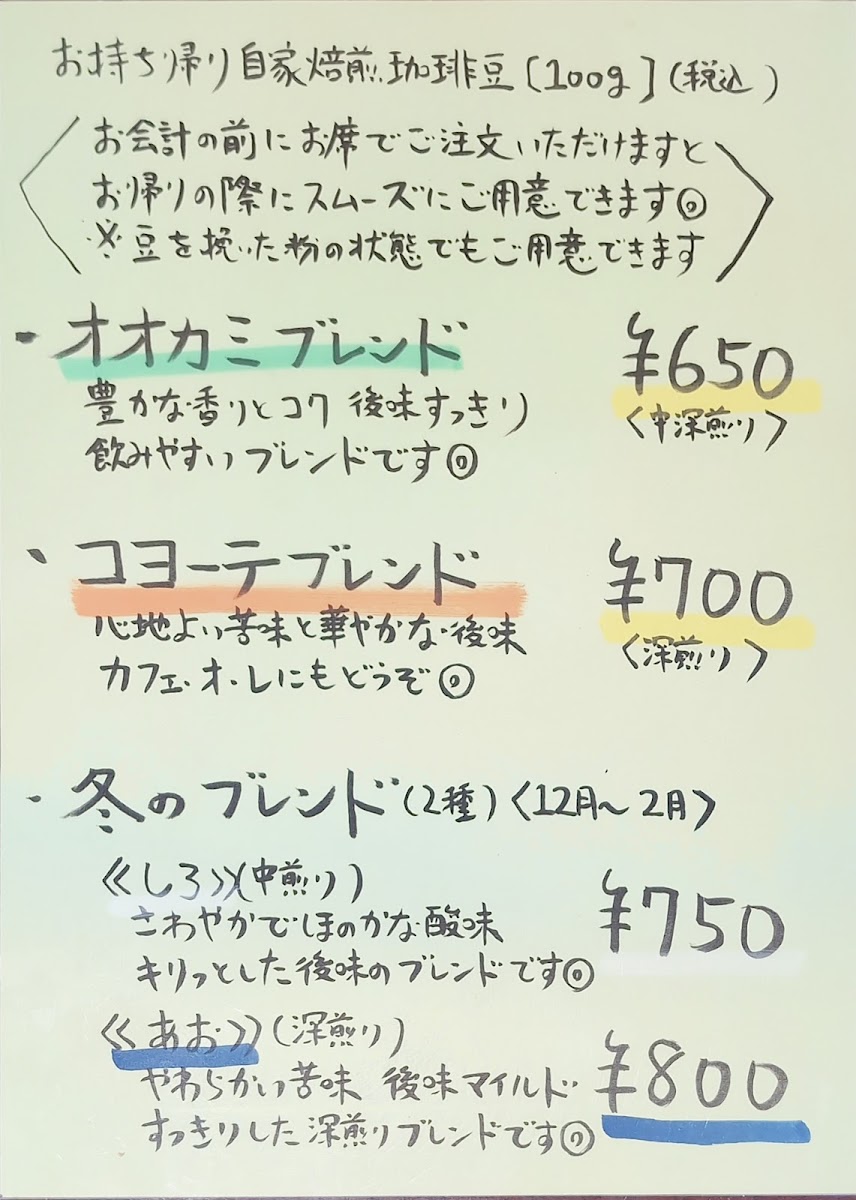 お持ち帰り自家焙煎珈琲豆[100g](税込)
お会計の前にお席でご注文いただけますと
お帰りの際にスムーズにご用意できます◎
※豆を挽いた粉の状態でもご用意できます
・オオカミブレンド ¥650
豊かな香りとコク 後味すっきり 〈中深煎り〉
飲みやすいブレンドです◎
・コヨーテブレンド ¥700
心地よい苦味と華やかな後味 〈深煎り〉
カフェ・オ・レにもどうぞ◎
・冬のブレンド(2種)〈12月〜2月〉
《しろ》(中煎り) ¥750
さわやかでほのかな酸味
キリっとした後味のブレンドです◎
《あお》(深煎り) ¥800
やわらかい苦味 後味マイルド
すっきりした深煎りブレンドです◎